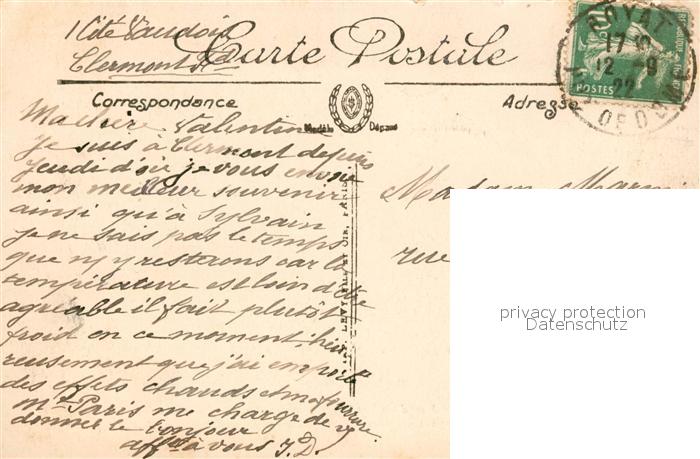 1 Cité Vaudoit
Clermont Fd
Carte Postale
Correspondance
Adresse
Modèle Déposé
ROYAT
17
12 -9
22
PUY DE DOME
POSTES
10
Ma chère Valentine
Je suis à Clermont depuis
jeudi d'où je vous envoie
mon meilleur souvenir
ainsi qu'à Sylvain
je ne sais pas le temps
que n/y resterons car la
température est loin d'être
agréable il fait plutôt
froid en ce moment heu
reusement que j'ai emporté
des effets chauds et ma fourrure
Mr Paris me charge de vs
donner le bonjour
affon à vous J.D.
LEVY FILS ET CIE, PARIS
Madame
rue
privacy protection
Datenschutz